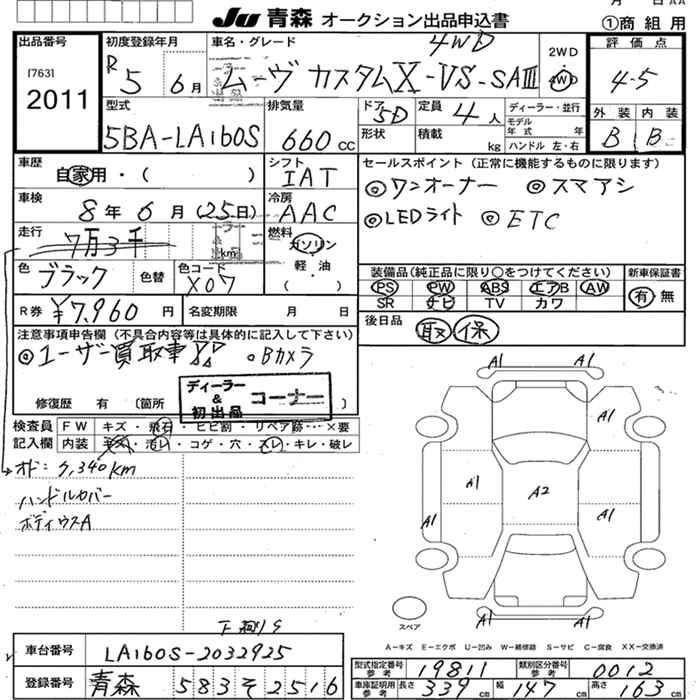 Ju 青森 オークション出品申込書
①商組用
出品番号
[763]
2011
初度登録年月
R5 6月
車名・グレード
4WD
ムーヴ カスタムX-VS-SAⅢ
2WD
4WD
評価点
4-5
外装 内装
B B
型式
5BA-LA160S
排気量
660cc
ドア
5D
形状
定員 4人
積載 kg
ディーラー・並行
モデル
年式 年
ハンドル 左・右
車歴
自家用・( )
シフト
IAT
セールスポイント(正常に機能するものに限ります)
◎ワンオーナー ◎スマアシ
◎LEDライト ◎ETC
車検
8年6月(25日)
冷房
AAC
走行
7万3千
km
燃料
ガソリン
軽・油
( )
色
ブラック
色替
色コード
X07
装備品(純正品に限り○をつけてください)
PS PW ABS エアB AW
SR ナビ TV カワ
新車保証書
有 無
R券 ¥7,960円
名変期限 月 日
後日品
取 保
注意事項申告欄(不具合内容等は具体的に記入して下さい)
◎ユーザー買取車
◦Bカメラ
修復歴 有 (箇所 )
ディーラー
&
初出品
コーナー
検査員
記入欄
FW キズ・飛石・ヒビ割・リペア跡…×要
内装 ・汚レ・コゲ・穴・スレ・キレ・破レ
オド:7,340km
ハンドルカバー
ボディウスA
A1 A1
A1
A1 A2
A1 A1
A1 A1
スペア
A―キズ E―エクボ U―凹み W―補修跡 S―サビ C―腐食 XX―交換済
車台番号
LA160S-2032925
登録番号
青森 583 そ 2516
型式指定番号
参考
19811
類別区分番号
参考
0012
車庫証明用
参考
長さ 339cm 幅 147cm 高さ 163cm